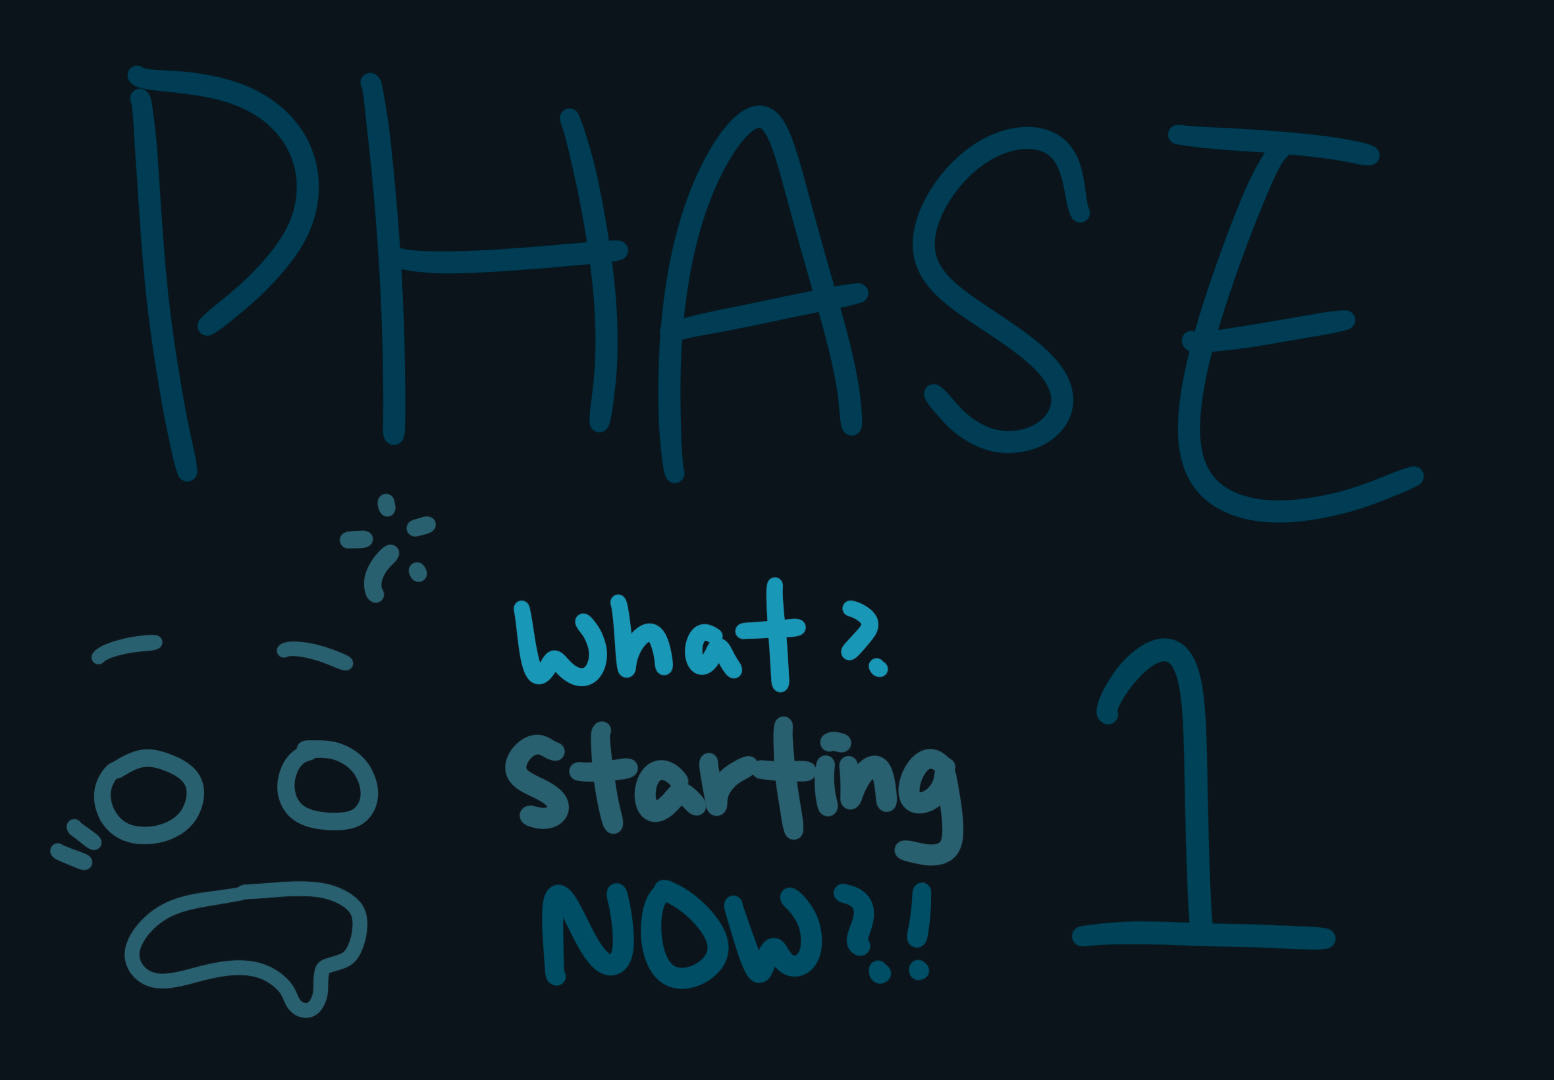 PHASE
1
What?
Starting
NOW?!